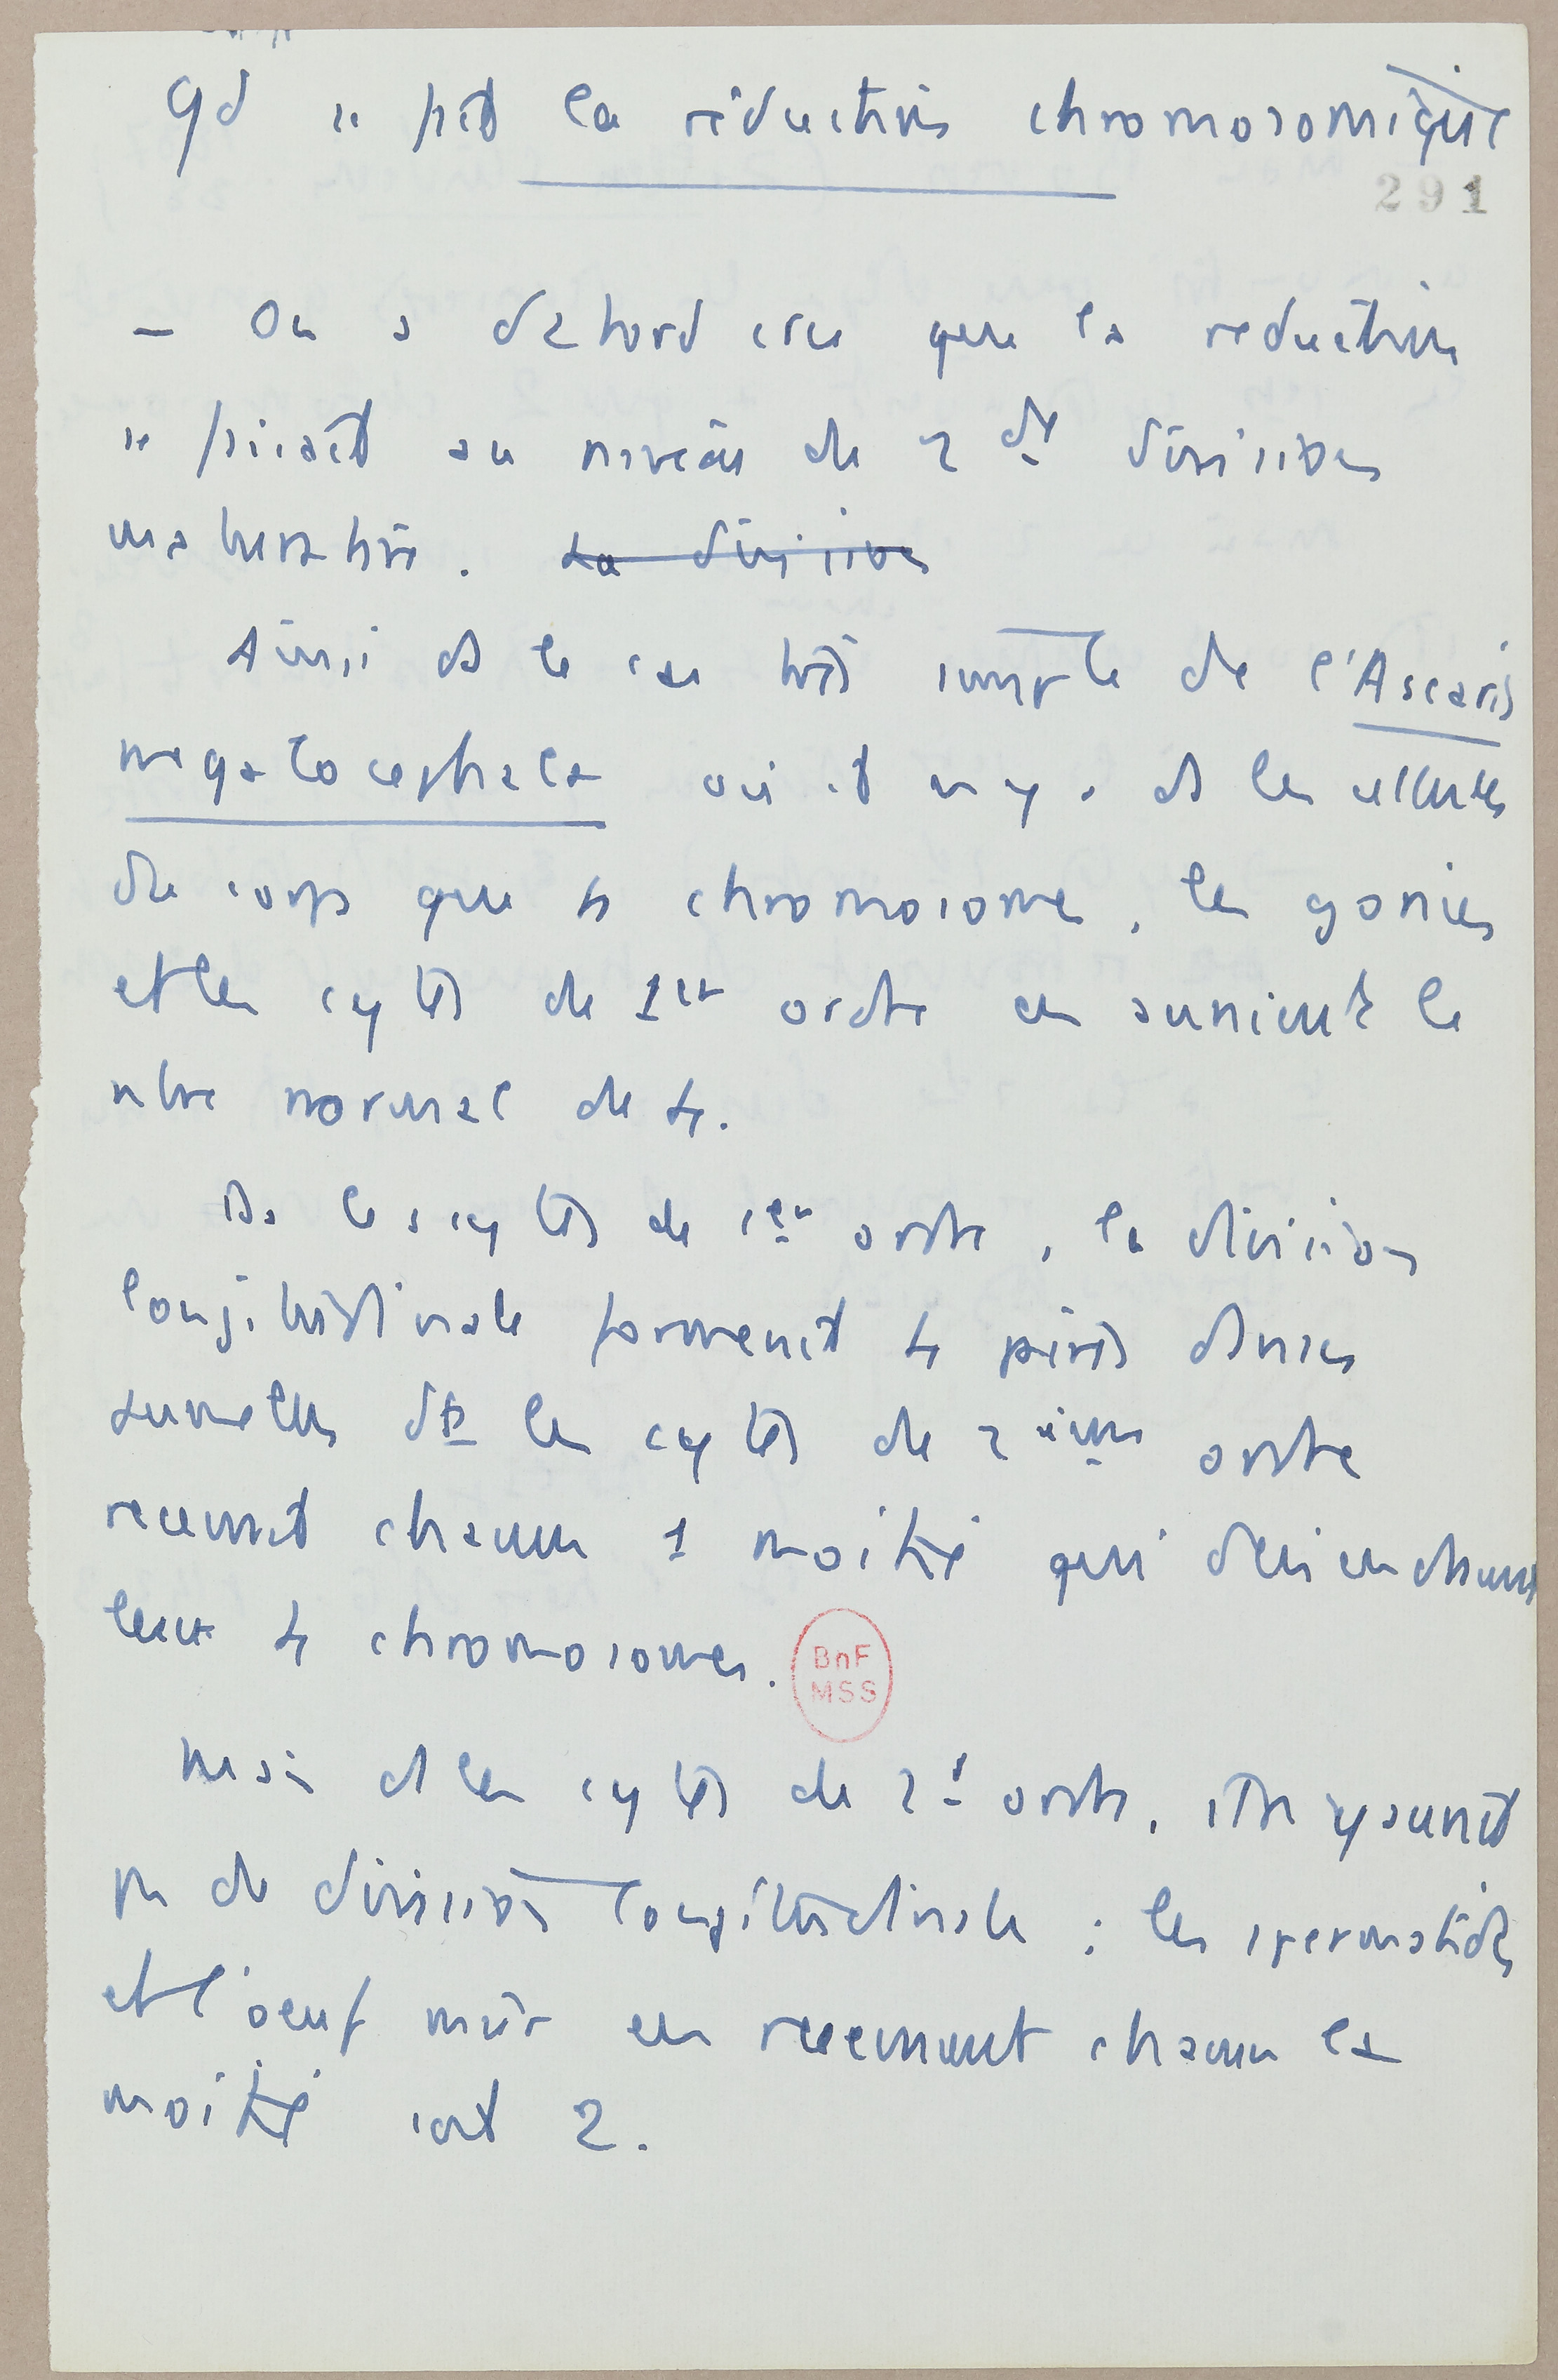 Qd se fait la réduction chromosomique
291
– On a d'abord cru que la réduction
se faisait au niveau de 2de division
maturative. La division
Ainsi ds le cas très simple de l'Ascaris
megalocephala où il n'y a ds les cellules
du corps que 4 chromosomes, les gonies
et les cytes de 1er ordre en auraient le
nbre normal de 4.
Ds les cytes de 1er ordre, la division
longitudinale formerait 4 paires d'anses
jumelles dt les cytes de 2ième ordre
recevrait chacun 1 moitié qui
leur 4 chromosomes.
BnF
MSS
Mais ds les cytes de 2d ordre, il n'y aurait
pas de division longitudinale : les spermatides
et l'oeuf mûr en recevraient chacun la
moitié soit 2.